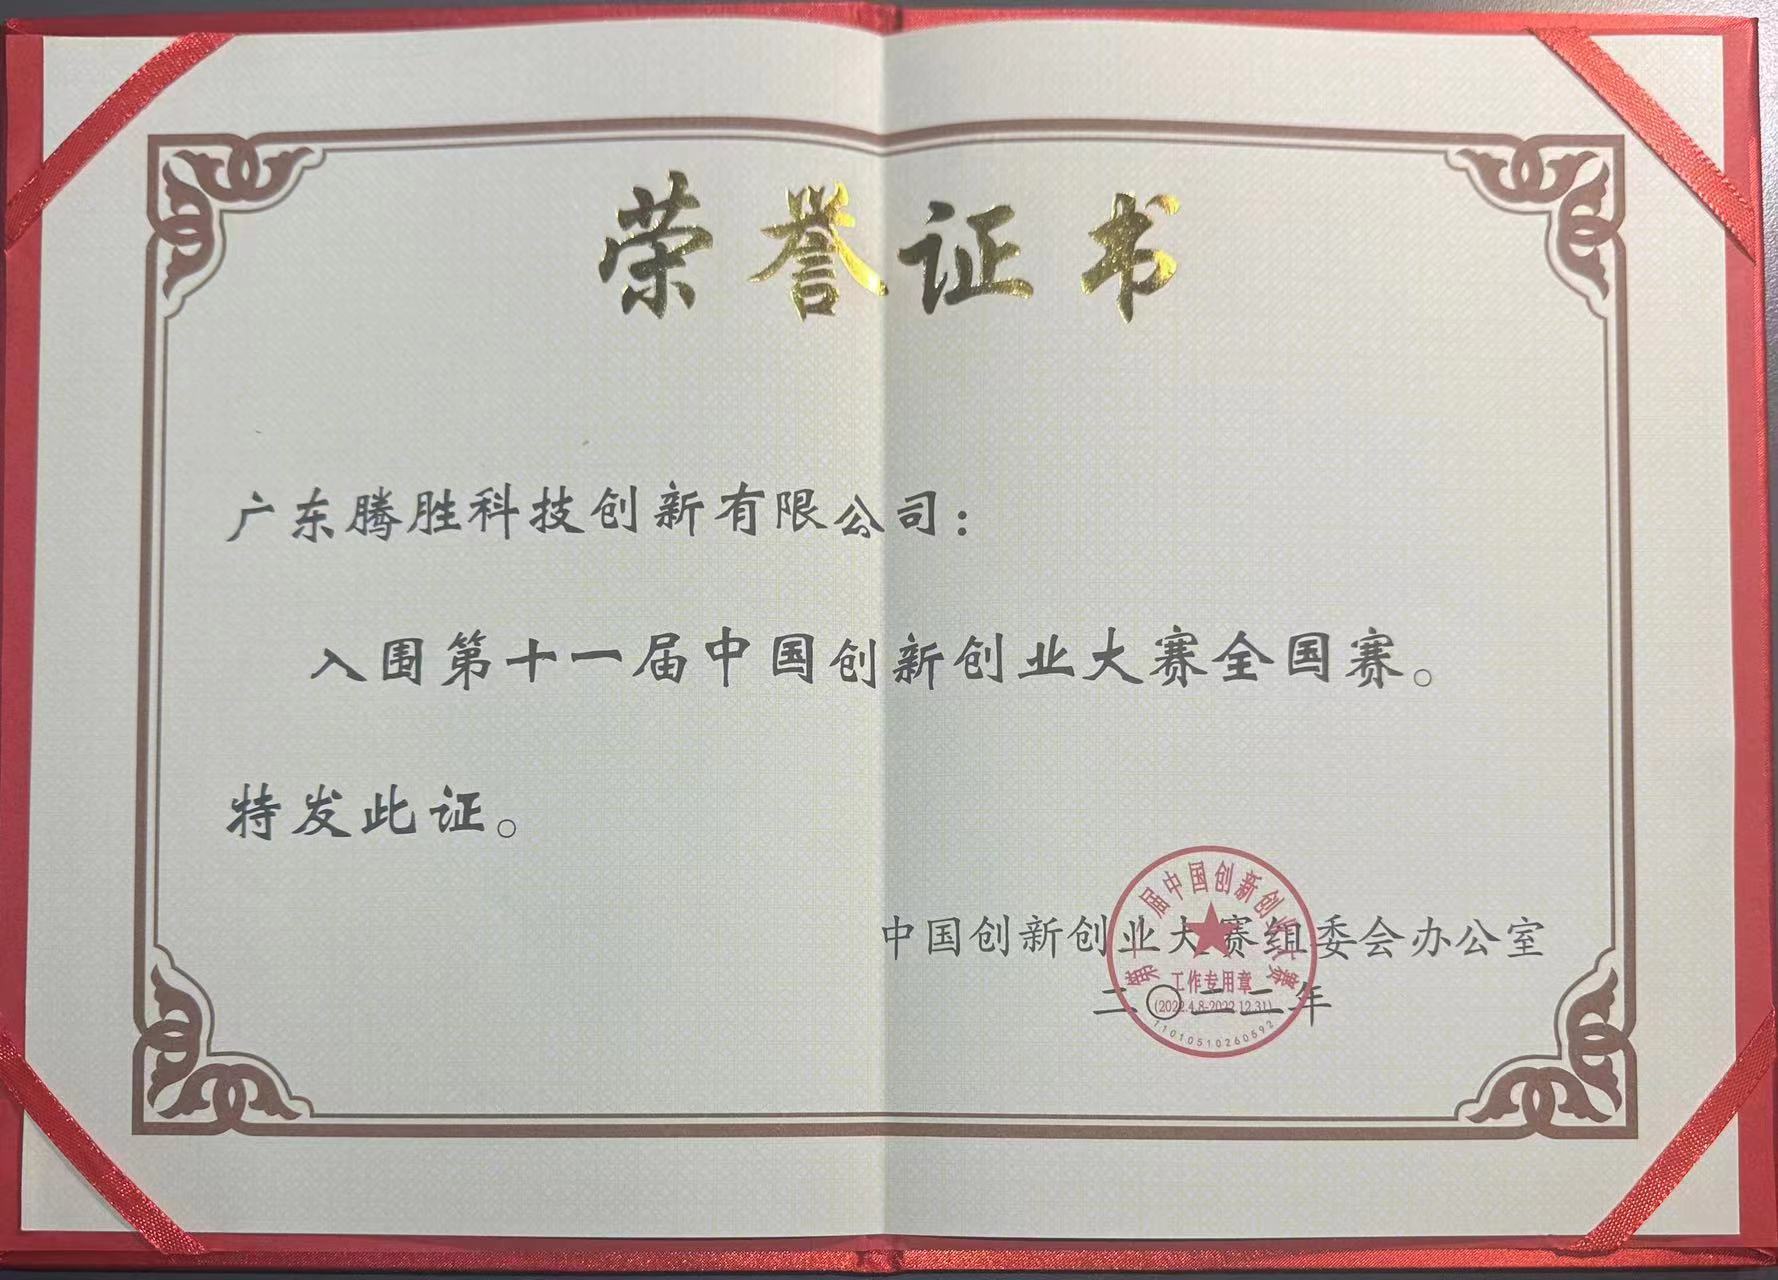 荣誉证书
广东腾胜科技创新有限公司：
入围第十一届中国创新创业大赛全国赛。
特发此证。
中国创新创业大赛组委会办公室
二〇二二年
第十一届中国创新创业大赛
工作专用章
(2022.4.8-2022.12.31)
11010510260592